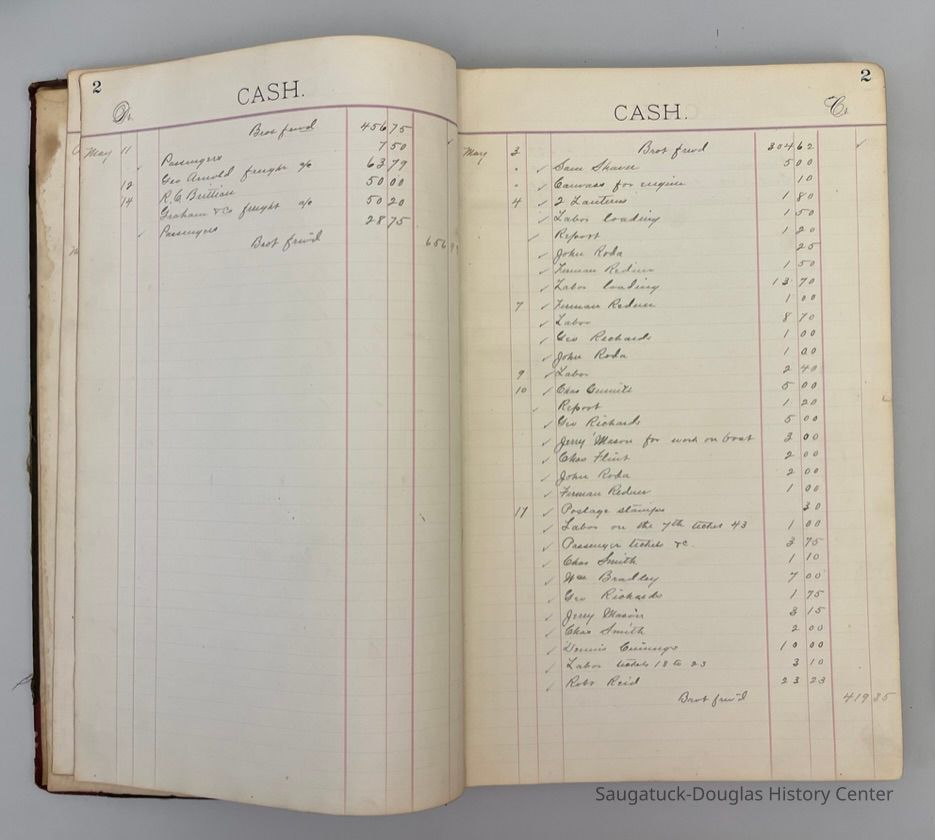 2
CASH.
Dr.
Brot frw'd 456 75
May 11 Passengers 7 50
Geo Arnold freight a/c 63 79
12 R.C. Brittian 50 00
14 Graham & Co freight a/c 50 20
Passengers 28 75
Brot frw'd 656 99
2
CASH.
Cr.
May 3 Brot frwd 304 62
" ✓ Sam Shaver 5 00
" ✓ Canvass for engine 10
4 ✓ 2 Lanterns 1 80
✓ Labor loading 1 50
✓ Report 1 20
✓ John Roda 25
✓ Ferman Redner 1 50
✓ Labor loading 13 70
7 ✓ Ferman Redner 1 00
✓ Labor 8 70
✓ Geo Richards 1 00
✓ John Roda 1 00
9 ✓ Labor 2 40
10 ✓ Chas 5 00
✓ Report 1 20
✓ Geo Richards 5 00
✓ Jerry Mason for work on boat 3 00
✓ Chas Flint 2 00
✓ John Roda 2 00
✓ Ferman Redner 1 00
17 ✓ Postage stamps 30
✓ Labor on the 7th ticket 43 1 00
✓ Passenger tickets &c. 3 75
✓ Chas Smith 1 10
✓ Wm Bradley 7 00
✓ Geo Richards 1 75
✓ Jerry Mason 3 15
✓ Chas Smith 2 00
✓ Dennis 10 00
✓ Labor tickets 18 to 23 3 10
✓ Robt Reid 23 23
Brot frw'd 419 35
Saugatuck-Douglas History Center